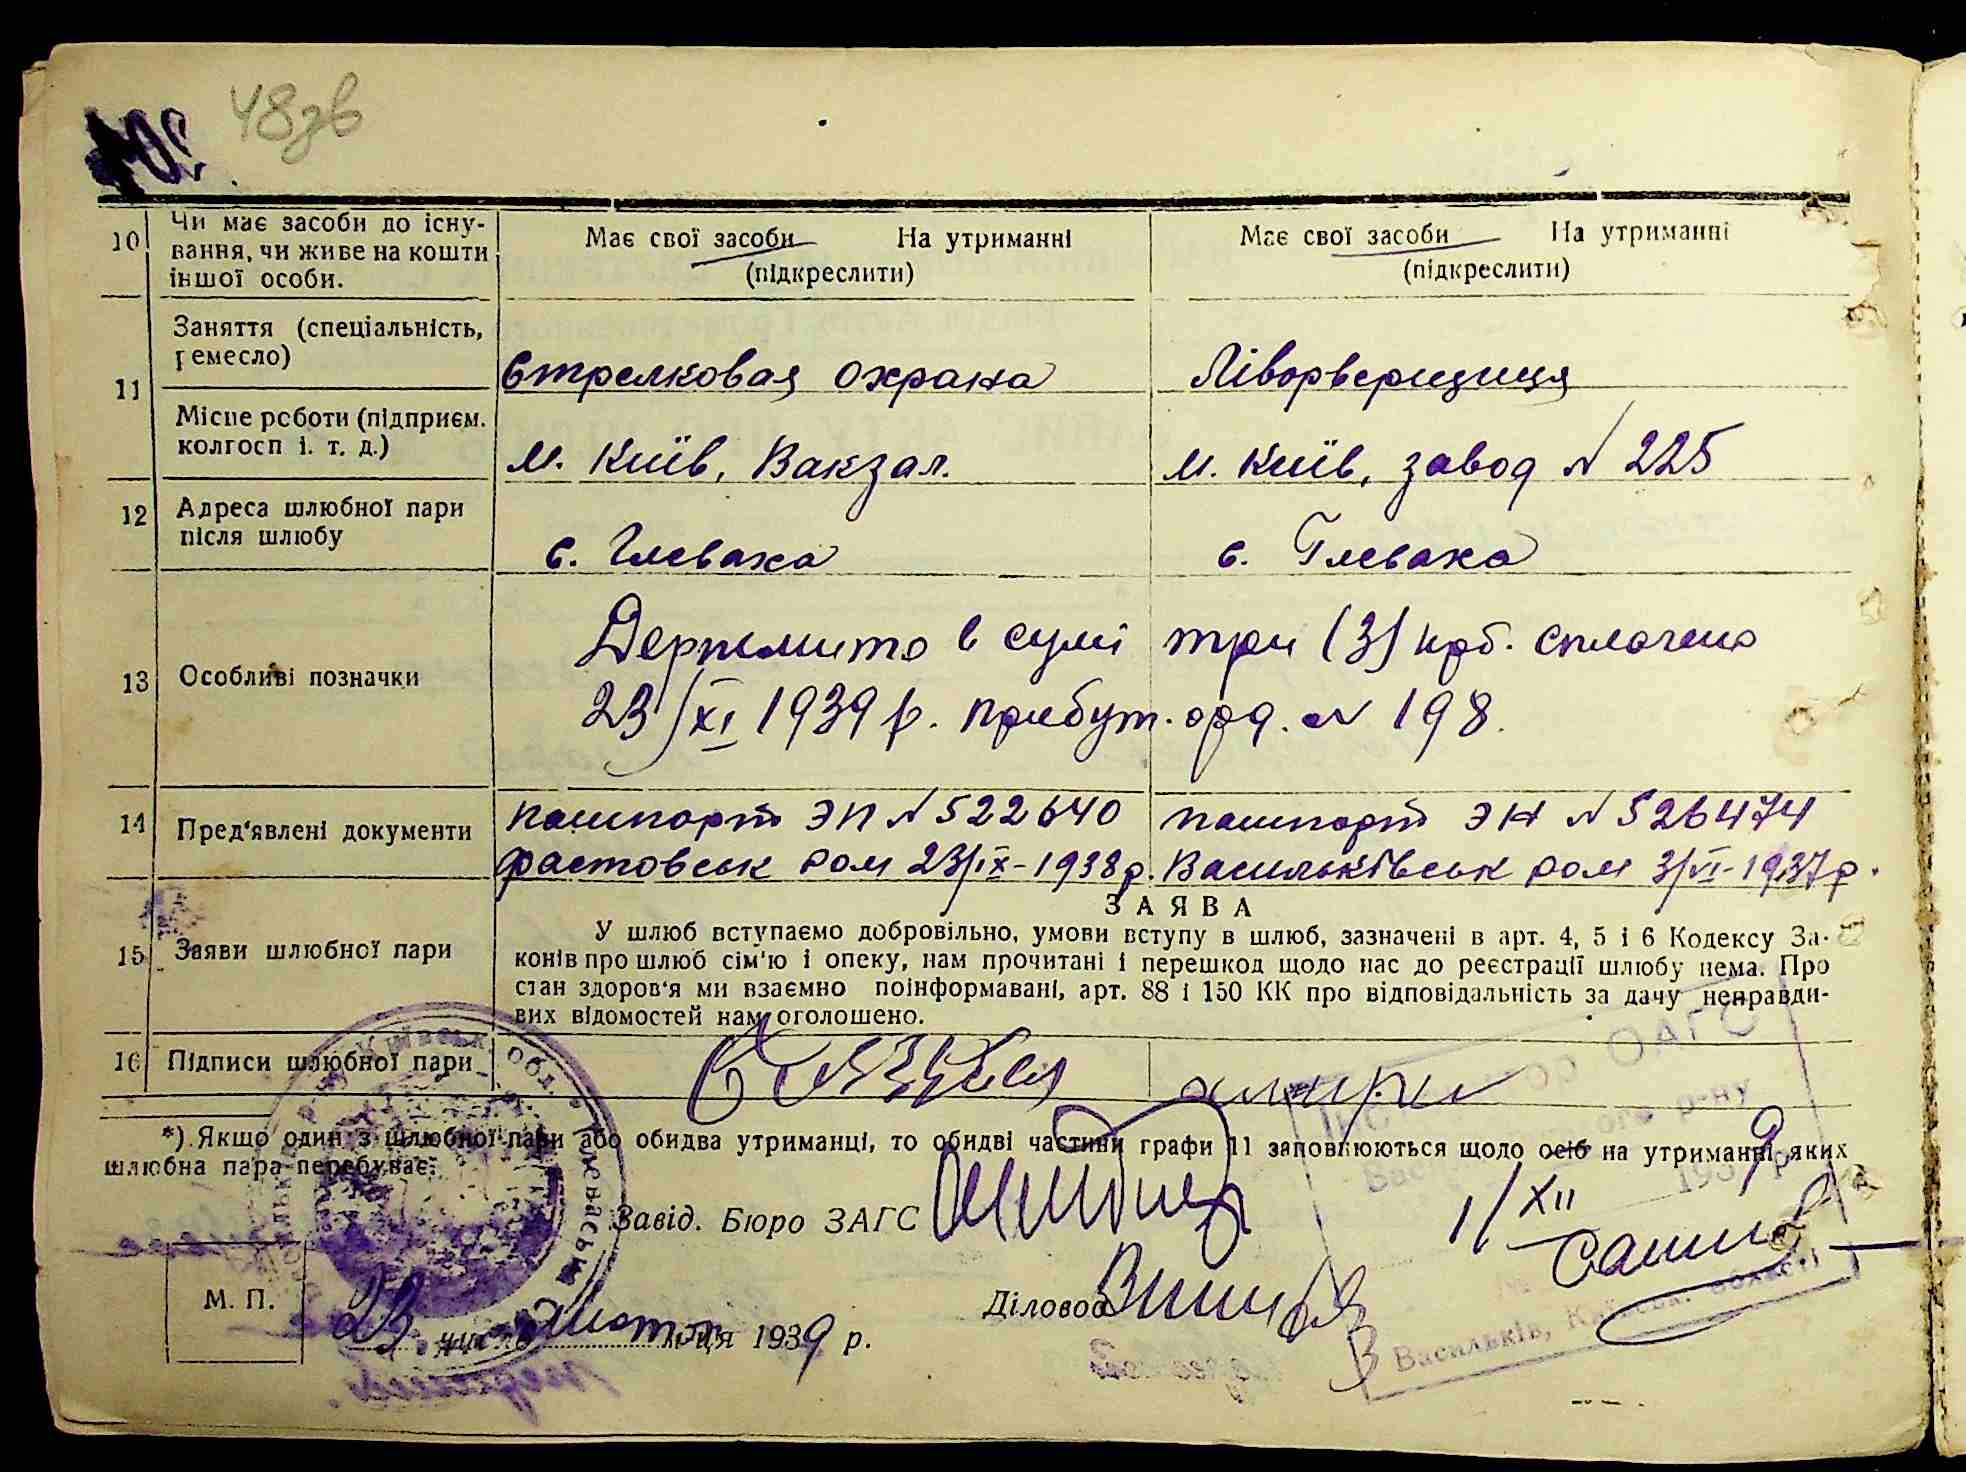 48зв
10 Чи має засоби до існу-
вання, чи живе на кошти
іншої особи.
Має свої засоби На утриманні
(підкреслити)
Має свої засоби На утриманні
(підкреслити)
11 Заняття (спеціальність,
ремесло)
Стрелковая охрана
Ліворверщиця
Місце роботи (підприєм.
колгосп і. т. д.)
м. Київ, Вакзал.
м. Київ, завод № 225
12 Адреса шлюбної пари
після шлюбу
с. Глеваха
с. Глеваха
13 Особливі позначки
Держмито в сумі три (3) крб. сплочено
23/XI 1939 р. прибут. орд. № 198.
14 Пред'явлені документи
пашпорт ЭП № 522640
фастовськ ром 23/IX-1938р.
пашпорт ЭН № 526474
Васильківськ ром 3/VI-1937р.
15 Заяви шлюбної пари
ЗАЯВА
У шлюб вступаємо добровільно, умови вступу в шлюб, зазначені в арт. 4, 5 і 6 Кодексу За-
конів про шлюб сім'ю і опеку, нам прочитані і перешкод щодо нас до реєстрації шлюбу нема. Про
стан здоров'я ми взаємно поінформавані, арт. 88 і 150 КК про відповідальність за дачу неправди-
вих відомостей нам оголошено.
16 Підписи шлюбної пари
*) Якщо один з шлюбної пари або обидва утриманці, то обидві частини графи 11 заповнюються щодо осіб на утриманні яких
шлюбна пара перебуває.
Завід. Бюро ЗАГС
1/XII
М. П.
Діловод
23 числа місяця 1939 р.
ОАГС
р-ну
1939 р.
Васильків, Київськ. області